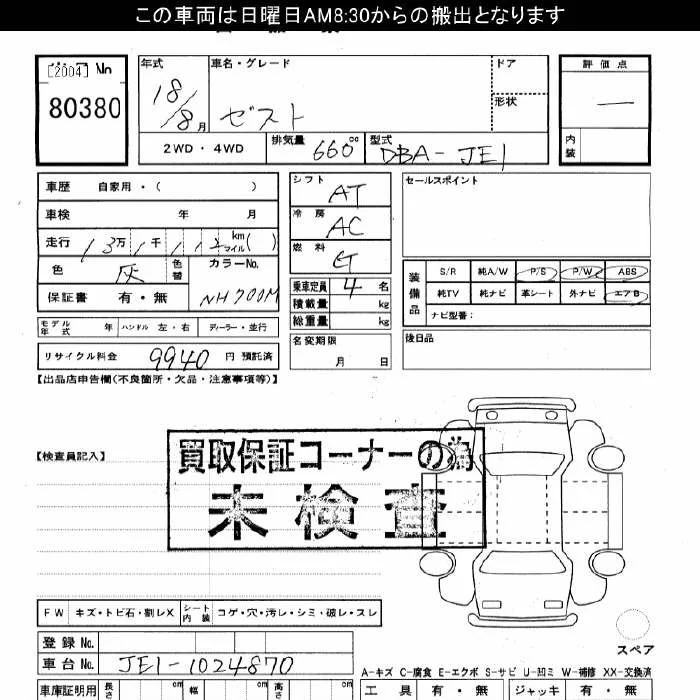 この車両は日曜日AM8:30からの搬出となります
[2004] No
80380
年式
18/8月
車名・グレード
ゼスト
ドア
形状
評価点
—
内装
2WD・4WD
排気量 660cc
型式 DBA-JE1
車歴 自家用・( )
車検 年 月
走行 13万1千112km マイル( )
色 灰
色替
カラーNo.
NH700M
保証書 有・無
シフト AT
冷房 AC
燃料
乗車定員 4 名
積載量 kg
総重量 kg
セールスポイント
装備品
S/R 純A/W P/S P/W ABS
純TV 純ナビ 革シート 外ナビ エアB
ナビ型番:
モデル年式 年 ハンドル 左・右 ディーラー・並行
名変期限
月 日
後日品
リサイクル料金 9940 円 預託済
【出品店申告欄(不良箇所・欠品・注意事項等)】
【検査員記入】
買取保証コーナーの為
未検査
FW キズ・トビ石・割レX シート内装 コゲ・穴・汚レ・シミ・破レ・スレ
登録No.
車台No. JE1-1024870
スペア
A-キズ C-腐食 E-エクボ S-サビ U-凹ミ W-補修 XX-交換済
車庫証明用 長さ cm 幅 cm 高さ cm
工具 有・無 ジャッキ 有・無